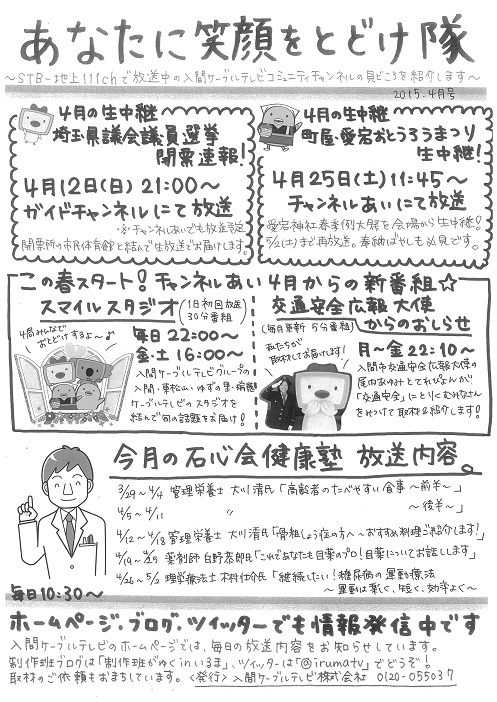 あなたに笑顔をとどけ隊
～STB-地上111chで放送中の入間ケーブルテレビコミュニティチャンネルの見どころを紹介します～
2015.4月号
4月の生中継
埼玉県議会議員選挙
開票速報!
4月12日(日) 21:00～
ガイドチャンネルにて放送
※チャンネルあいでも放送
開票所の市民体育館と結んで生放送でお届けします。
4月の生中継
町屋・愛宕おとうろうまつり
生中継!
4月25日(土)11:45～
チャンネルあいにて放送
愛宕神社春季例大祭を会場から生中継!
5/2(土)まで再放送。奉納ばやしも必見です。
この春スタート!チャンネルあい4月からの新番組☆
スマイルスタジオ
(1日初回放送)
30分番組
4局みんなで
おとどけするよ～♪
毎日 22:00～
金・土 16:00～
入間ケーブルテレビグループの
入間・東松山・ゆずの里・瑞穂
ケーブルテレビのスタジオを
結んで旬の話題をお届け!
交通安全広報大使
からのおしらせ
(毎月更新 5分番組)
私たちが
取材してお届けします!
月～金 22:10～
入間市交通安全広報大使の
尾内あゆみとてれぴょんが
「交通安全」にとりくむみなさん
をみつけて取材&紹介します!
今月の石心会健康塾 放送内容。
3/29～4/4 管理栄養士 大川清氏「高齢者のたべやすい食事 ～前半～」
4/5～4/11 〃 ～後半～」
4/12～4/18 管理栄養士 大川清氏「骨粗しょう症の方へ～おすすめ料理ご紹介します!」
4/19～4/25 薬剤師 白野恭郎氏「これであなたも目薬のプロ!目薬についてお話しします」
4/26～5/2 理学療法士 木村仕介氏「継続したい!糖尿病の運動療法
～運動は楽しく、短く、効率よく～
毎日10:30～
ホームページ、ブログ、ツイッターでも情報発信中です
入間ケーブルテレビのホームページでは、毎日の放送内容をお知らせしています。
制作班ブログは「制作班がゆくinいるま」、ツイッターは「@irumatv」でどうぞ!
取材のご依頼もおまちしています。<発行>入間ケーブルテレビ株式会社 0120-055037